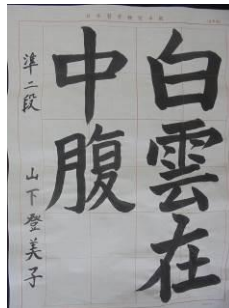 白雲在
中腹
準二段 山下登美子